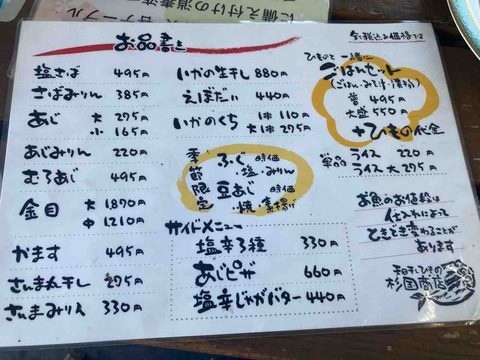 に備え付けの消毒
各テーブル
お品書き
全て税込み価格です
塩さば 495円
さばみりん 385円
あじ 大 275円
小 165円
あじみりん 220円
むろあじ 495円
金目 大 1870円
中 1210円
かます 495円
さんま丸干し 275円
さんまみりん 330円
いかの生干し 880円
えぼだい 440円
いかのくち 1本 110円
大1本 275円
季節限定
ふぐ 時価
・塩・みりん
豆あじ 時価
・焼・素揚げ
サイドメニュー
塩辛3種 330円
あじピザ 660円
塩辛じゃがバター 440円
ひものと一緒に
ごはんセット
(ごはん・みそ汁・漬物)
普 495円
大盛 550円
+ひもの代金
単品 ライス 220円
ライス大 275円
お魚のお値段は
仕入れによって
ときどき変わることが
あります
天日干しひもの
杉国商店